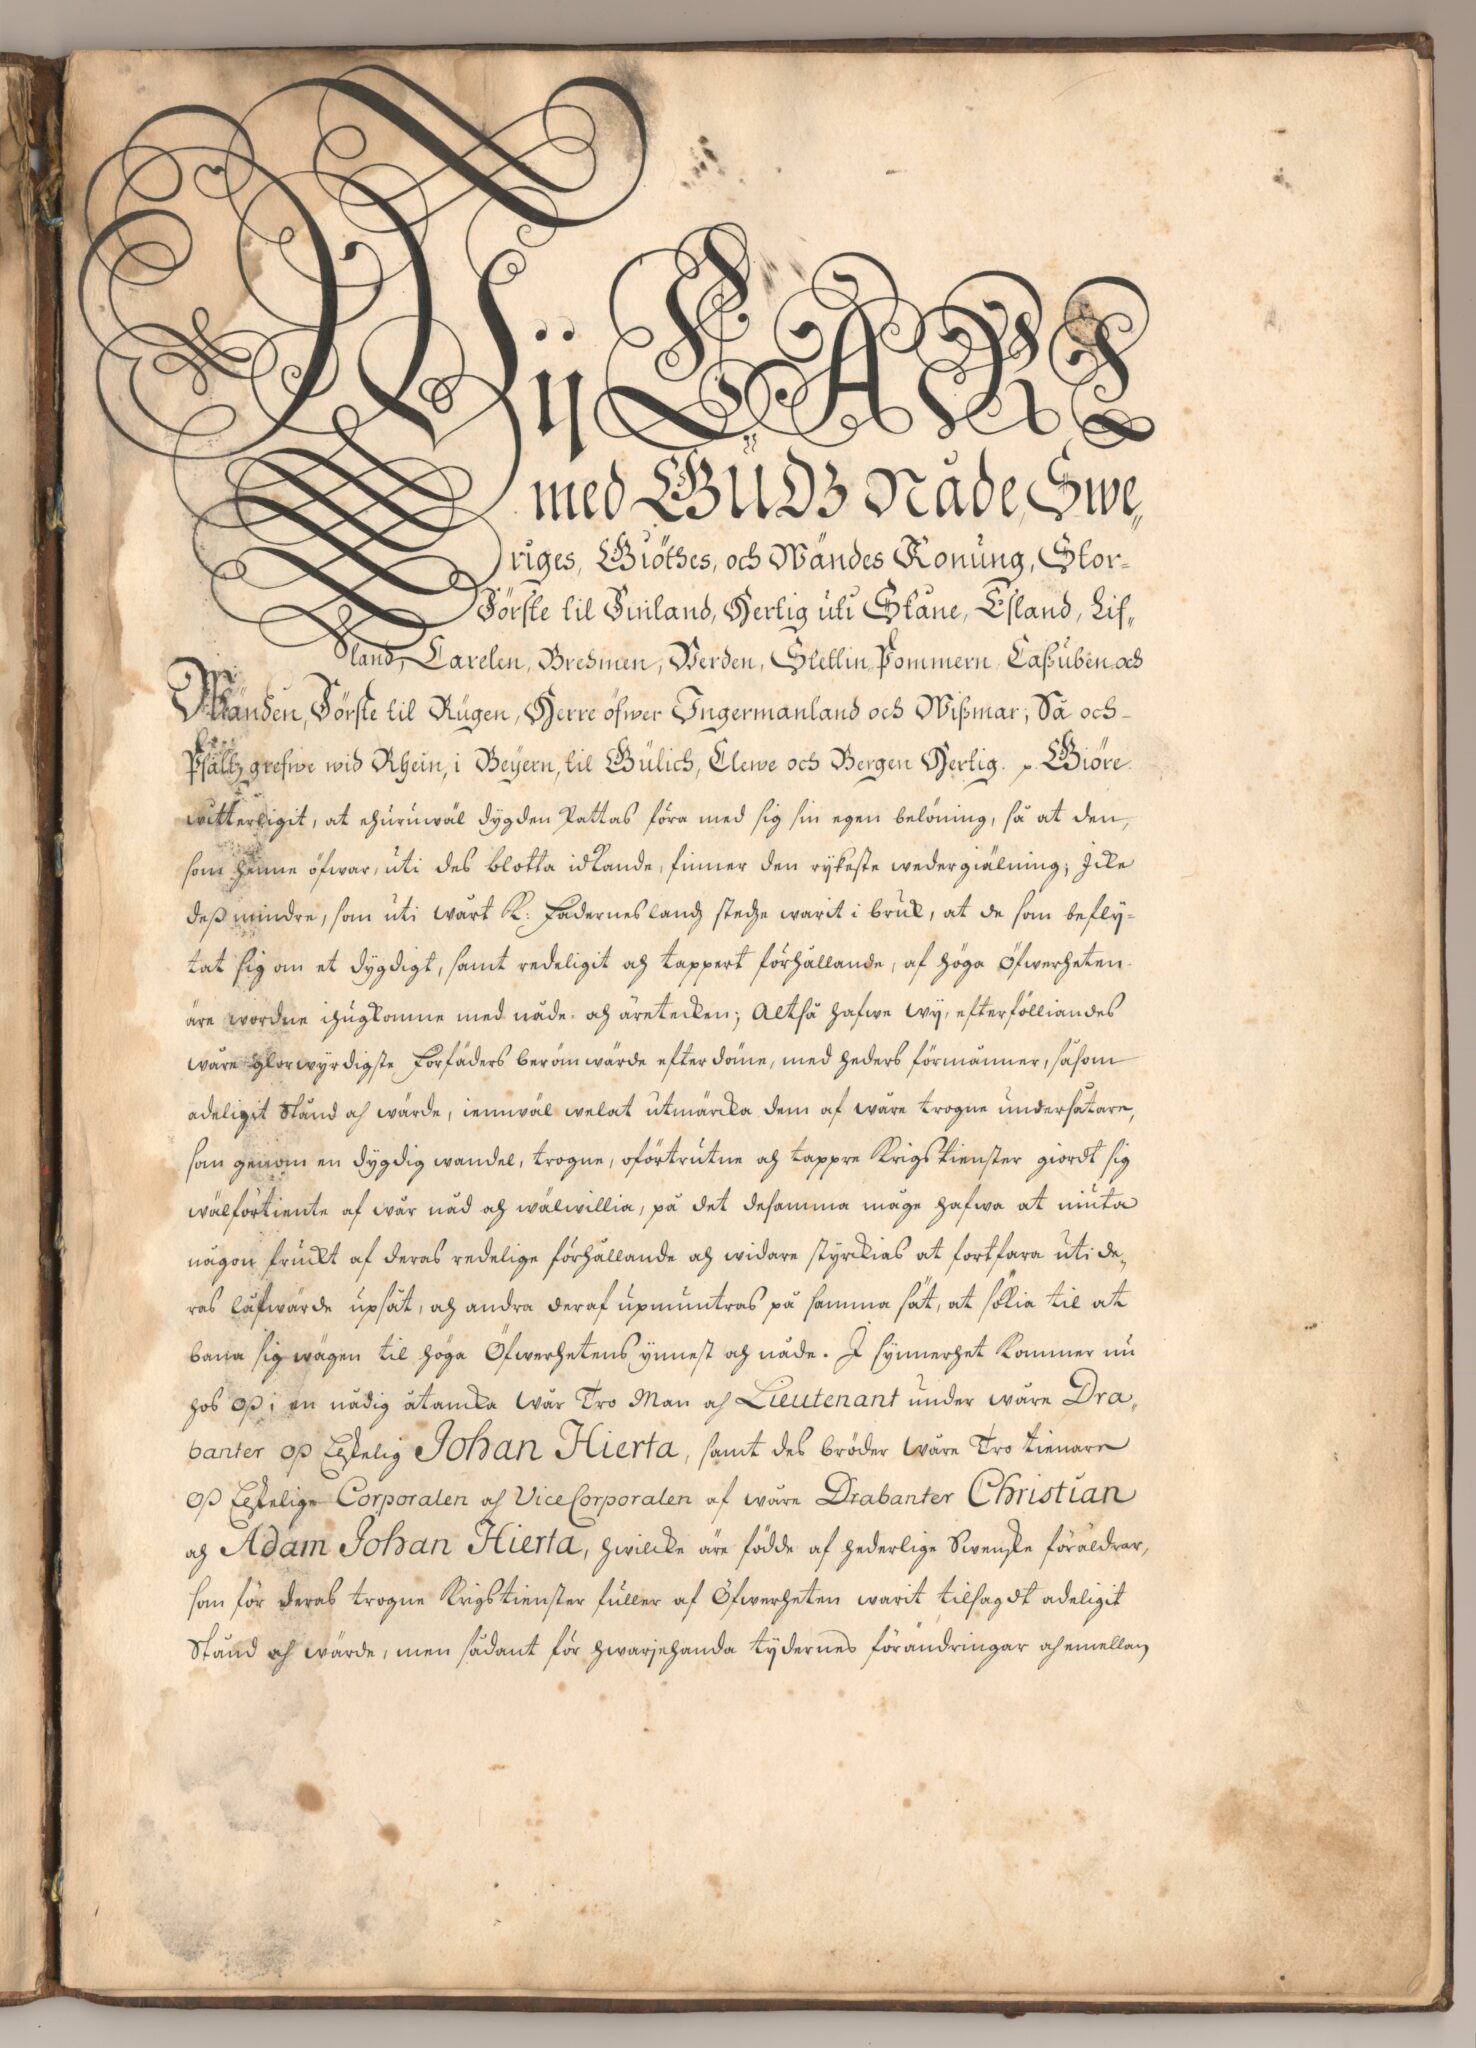 Wij CARL
med GUDZ Nåde, Swe„
riges, Giöthes, och Wändes Konung, Stor=
Förste til Finland, Hertig uti Skåne, Estland, Lif„
land, Carelen, Brehmen, Verden, Stettin Pommern, Caßuben och
Wänden, Förste til Rügen, Herre öfwer Ingermanland och Wißmar; Så och
Pfaltzgrefwe wid Rhein, i Beyern, til Gülich, Clewe och Bergen Hertig. p. Giöre
witterligit, at ehuruwäl dygden plattas föra med sig sin egen belöning, så at den,
som henne öfwar, uti des blotta idkande, finner den rykeste wedergiälning; Icke
deß mindre, som uti wårt K: Fädernesland stedze warit i bruk, at de som befly=
tat sig om et dygdigt, samt redeligit och tappert förhållande, af höga Öfwerheten
äre wordne ihugkomne med nåde och äretecken; Altså hafwe wy, efterfölliandes
wåre glorwyrdigste Förfäders berömwärde efterdöme, med heders förmåner, såsom
adeligit Stånd och wärde, iemwäl welat utmärcka dem af wåre trogne undersåtare,
som genom en dygdig wandel, trogne, oförtrutne och tappre Krigstienster giordt sig
wälförtiente af wår nåd och wälwillia, på det desamma måge hafwa at niuta
någon fruckt af deras redelige förhållande och widare styrckias at fortfara uti de„
ras låfwärde upsåt, och andra deraf upmuntras på samma sät, at sökia til at
bana sig wägen til höga Öfwerhetens ynnest och nåde. I synnerhet kommer nu
hos oß i en nådig åtancka wår Tro Man och Lieutenant under wåre Dra„
banter oß Elskelig Johan Hierta, samt des bröder wåre Tro tienare
oß Elskelige Corporalen och ViceCorporalen af wåre Drabanter Christian
och Adam Johan Hierta, hwilcke äre födde af hederlige Swenske föräldrar,
som för deras trogne Krigstienster fuller af Öfwerheten warit tilsagdt adeligit
Stånd och wärde, men sådant för hwarjehanda tydernes förändringar och emellan